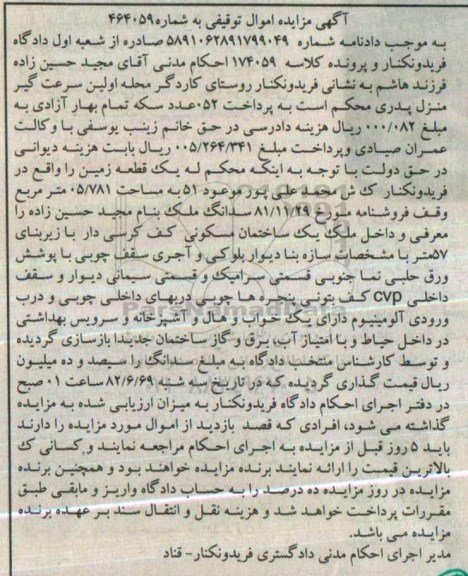 آگهی مزایده اموال توقیفی به شماره ۴۶۴۰۵۹
به موجب دادنامه شماره ۵۸۹۱۰۶۲۸۹۱۷۹۹۰۴۹ صادره از شعبه اول دادگاه
فریدونکنار و پرونده کلاسه ۱۷۴۰۵۹ احکام مدنی آقای مجید حسین زاده
فرزند هاشم به نشانی فریدونکنار روستای کاردگر محله اولین سرعت گیر
منزل پدری محکم است به پرداخت ۰۵۲عدد سکه تمام بهار آزادی به
مبلغ ۰۰۰/۰۸۲ ریال هزینه دادرسی در حق خانم زینب یوسفی با وکالت
عمران صیادی وپرداخت مبلغ ۰۰۵/۲۶۴/۳۴۱ ریال بابت هزینه دیوانی
در حق دولت با توجه به اینکه محکم له یک قطعه زمین را واقع در
فریدونکنار ک ش محمد علی پور موعود ۵۱ به مساحت ۰۵/۷۸۱ متر مربع
وقف فروشنامه مورخ ۸۱/۱۱/۲۹ سدانگ ملک بنام مجید حسین زاده را
معرفی و داخل ملک یک ساختمان مسکونی کف کرسی دار با زیربنای
۵۷متر با مشخصات سازه بنا دیوار بلوکی و آجری سقف چوبی با پوشش
ورق حلبی نما جنوبی قسمتی سرامیک و قسمتی سیمانی دیوار و سقف
داخلی cvp کف بتونی پنجره ها چوبی دربهای داخلی چوبی و درب
ورودی آلومینیوم دارای یک خواب و هال و آشپزخانه و سرویس بهداشتی
در داخل حیاط و با امتیاز آب، برق و گاز ساختمان جدیدا بازسازی گردیده
و توسط کارشناس منتخب دادگاه به مبلغ سدانگ را سیصد و ده میلیون
ریال قیمت گذاری گردیده که در تاریخ سه شنبه ۸۲/۶/۶۹ ساعت ۰۱ صبح
در دفتر اجرای احکام دادگاه فریدونکنار به میزان ارزیابی شده به مزایده
گذاشته می شود، افرادی که قصد بازدید از اموال مورد مزایده را دارند
باید ۵ روز قبل از مزایده به اجرای احکام مراجعه نمایند و کسانی ک
بالاترین قیمت را ارائه نمایند برنده مزایده خواهند بود و همچنین برنده
مزایده در روز مزایده ده درصد را به حساب دادگاه واریز و مابقی طبق
مقررات پرداخت خواهد شد و هزینه نقل و انتقال سند بر عهده برنده
مزایده می باشد.
مدیر اجرای احکام مدنی دادگستری فریدونکنار- قناد